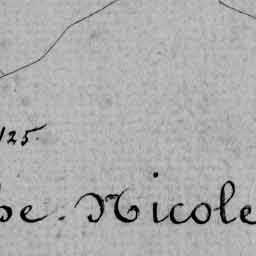 125.
be. Nicole